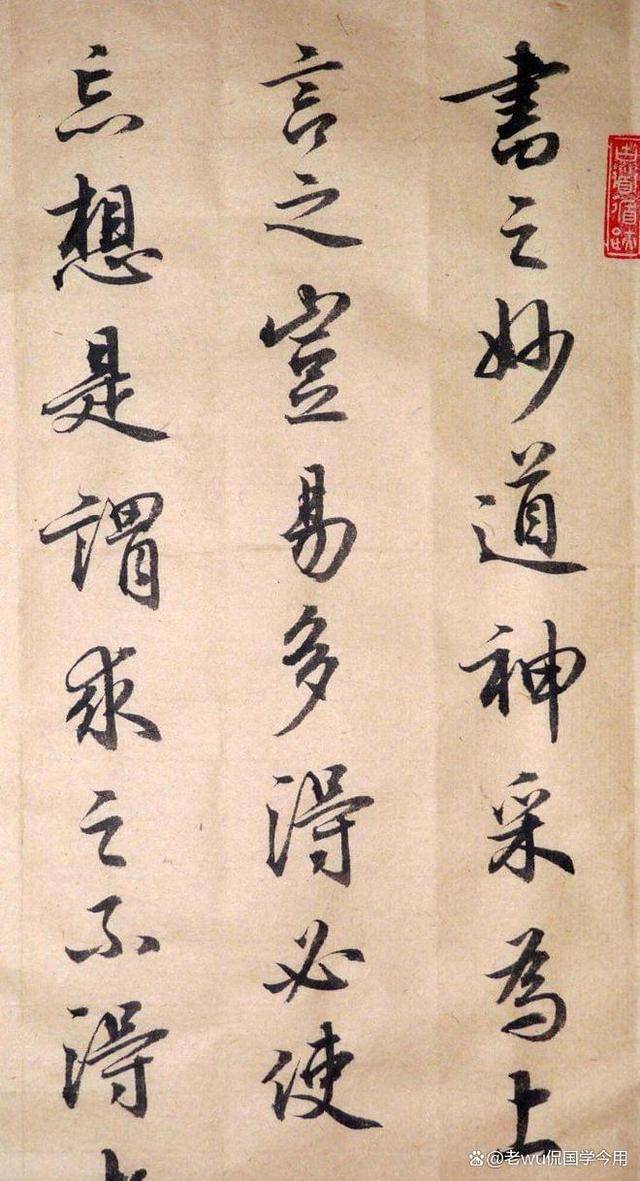 書之妙道神采為上
言之豈易多得必使
忘想是謂求之不得
@老wu侃国学今用